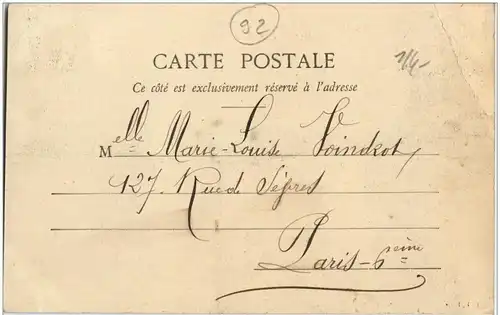 92
CARTE POSTALE
1/4-
Ce côté est exclusivement réservé à l'adresse
Melle Marie-Louise Voindrot,
127. Rue d. Sèvres
Paris-6